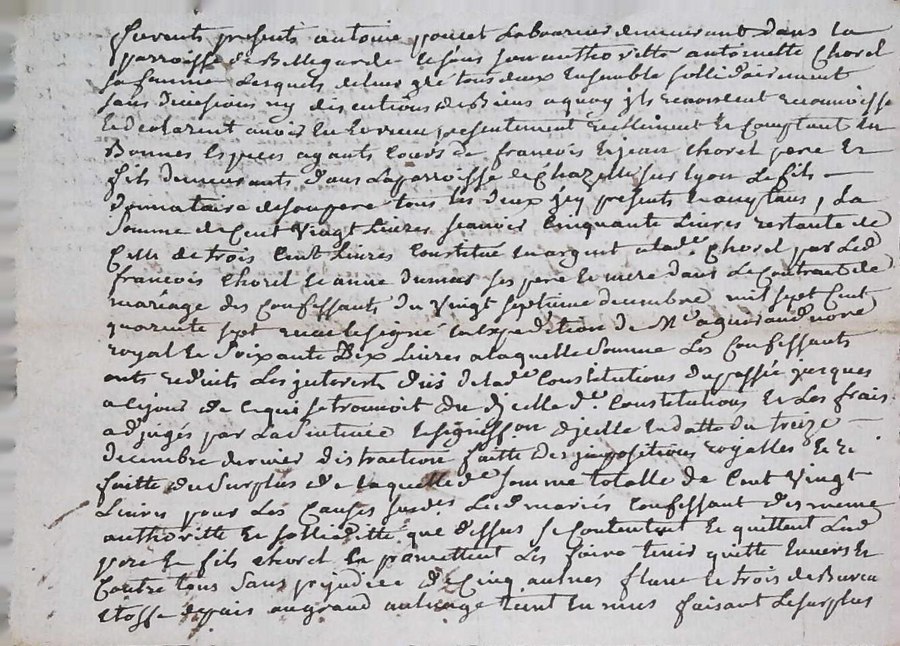 furent presents antoine poncet Laboureur demeurant dans la
parroisse de Bellegarde et sous son authoritte antoinette Chorel
sa femme Lesquels de leur gré tous deux Ensemble sollidairement
sans divisions ny discutions de Biens a quoy ils renoncent
Declarent avoir Eu Et receu presentement reellement Et Comptant En
Bonnes Especes ayants Cours de francois Et jean Chorel pere Et
fils demeurants dans La parroisse de Chazelle sur Lyon Le fils
donnataire de son pere tous les deux jcy presents Et acceptans, La
somme de Cent Vingt Livres scavoir Cinquante Livres restante de
Celle de trois Cent Livres Constitué En argent a lad.e Chorel par Led
francois Chorel Et anne ses pere Et mere dans Le Contract de
mariage des Confessants du Vingt Septieme decembre mil sept Cent
quarente sept receu Et signé En Expedition de Me nore
royal Et Soixante Dix Livres a laquelle somme Les Confessants
ont reduits Les jnterests de lad.e Constitutions du passé jusques
a Ce jour de Ce qui se trouvoit du d'jcelle d.e Constitutions Et Les frais
adjugés par La Sentence d'jcelle En datte du treize
decembre dernier distraction faitte des jmpositions royalles Et
faitte du Surplus de laquelle d.e somme totalle de Cent Vingt
Livres pour Les Causes susd.es Lesd mariés Confessant de meme
authoritte Et solliditté que dessus se Contentent Et quittent Lesd
pere Et fils Chorel Et promettent Les faire tenir quitte Envers Et
Contre tous Sans prejudice de Cinq aulnes Et trois de Bureau
Etoffe de pais au grand aulnage teint En mus faisant Le surplus